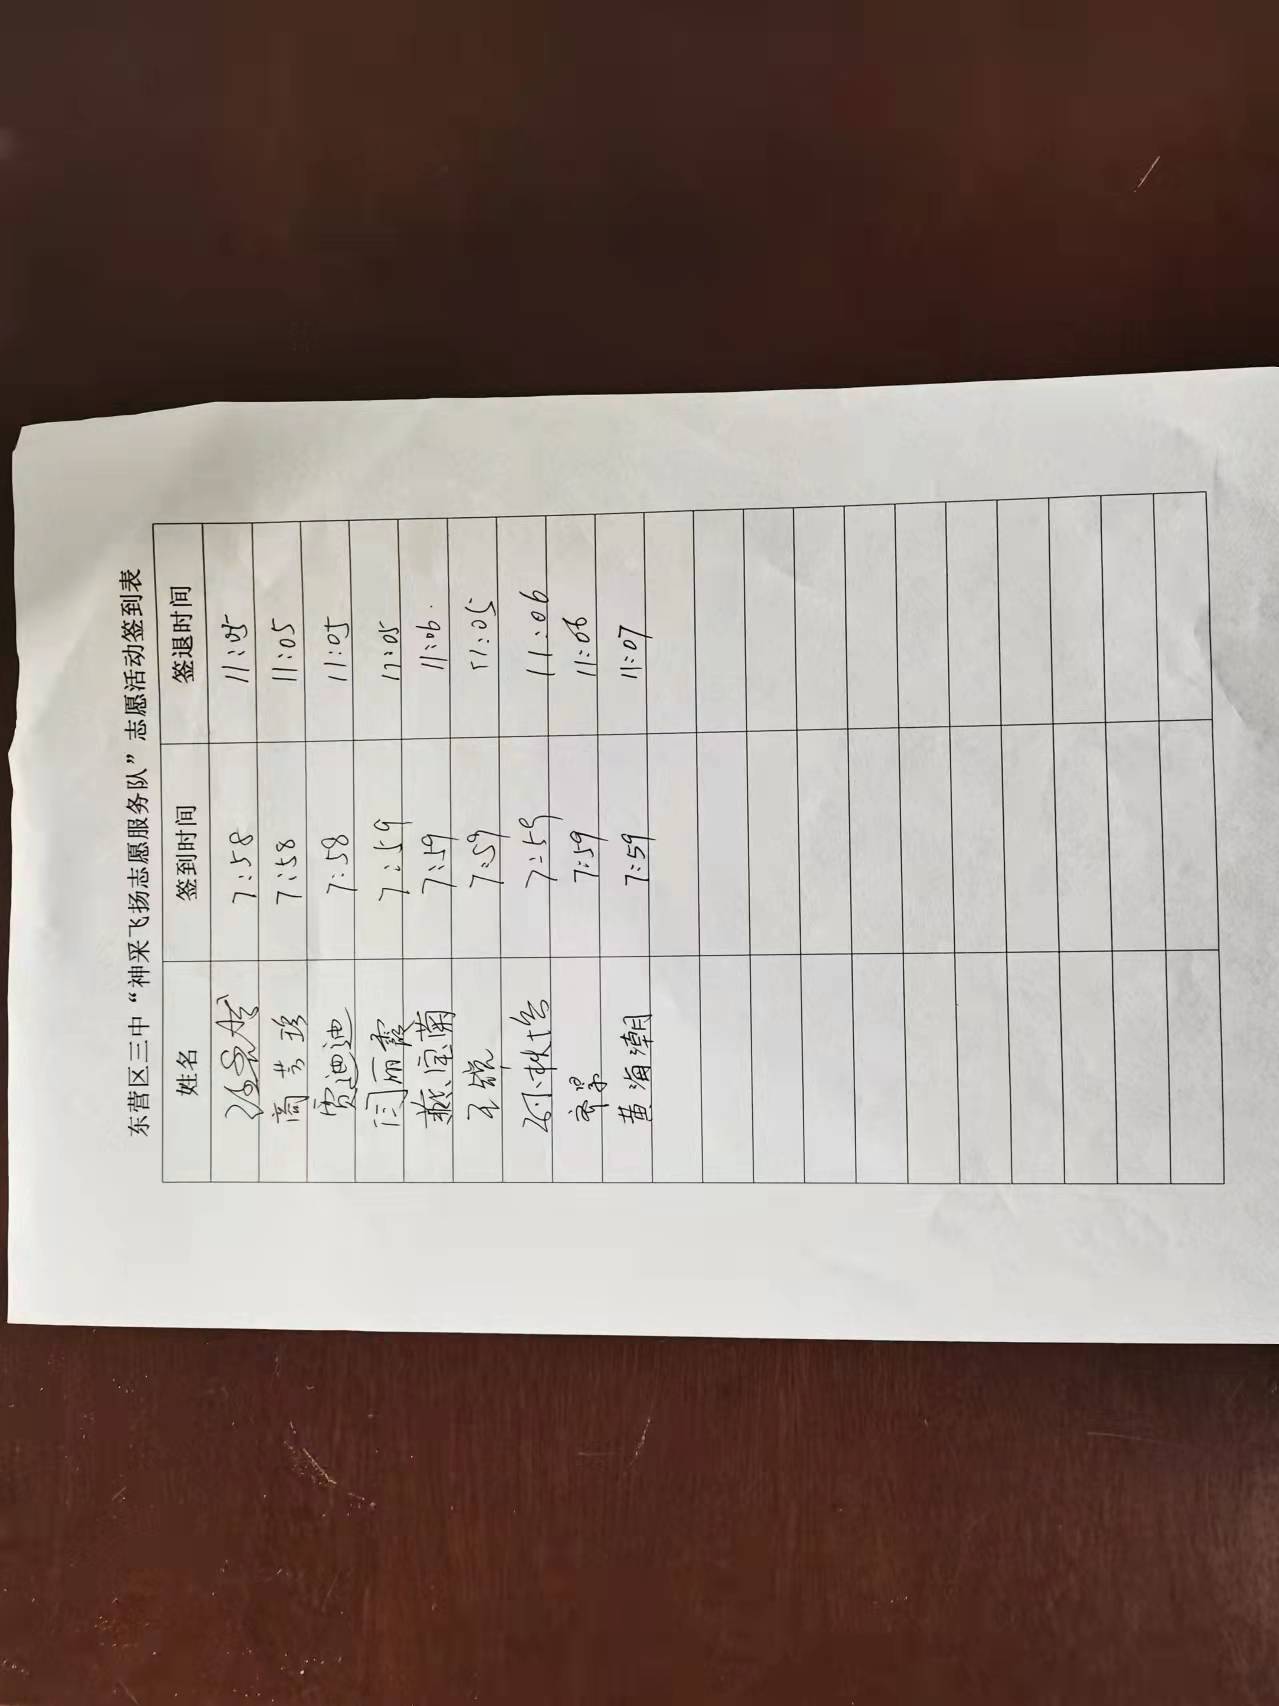 东营区三中“神采飞扬志愿服务队”志愿活动签到表
姓名 签到时间 签退时间
7:58 11:05
商芳珍 7:58 11:05
贾迪迪 7:58 11:05
闫丽霞 7:59 11:05
燕宝菊 7:59 11:06.
王锐 7:59 11:05
林培 7:59 11:06
7:59 11:06
黄海潮 7:59 11:07